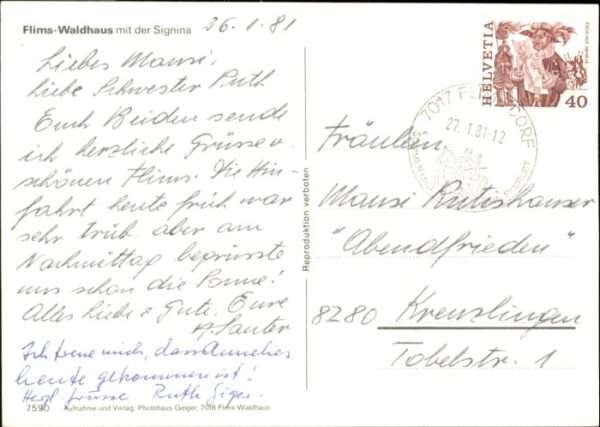 Flims-Waldhaus mit der Signina
26.1.81
Liebes Mausi,
liebe Schwester Ruth
Euch Beiden sende
ich herzliche Grüsse v.
schönen Flims. Die Hin-
fahrt heute früh war
sehr trüb aber am
Nachmittag begrüsste
uns schon die Sonne!
Alles Liebe & Gute. Eure
A. Sauter
Ich freue mich, dass Annelies
heute gekommen ist!
Herzl. Grüsse Ruth Giger.
7590 Aufnahme und Verlag: Photohaus Geiger, 7018 Flims-Waldhaus
Reproduktion verboten
HELVETIA
40
7017 FLIMS DORF
27.1.81-12
Fräulein
Mausi Rutishauser
"Abendfrieden"
8280 Kreuzlingen
Tobelstr. 1